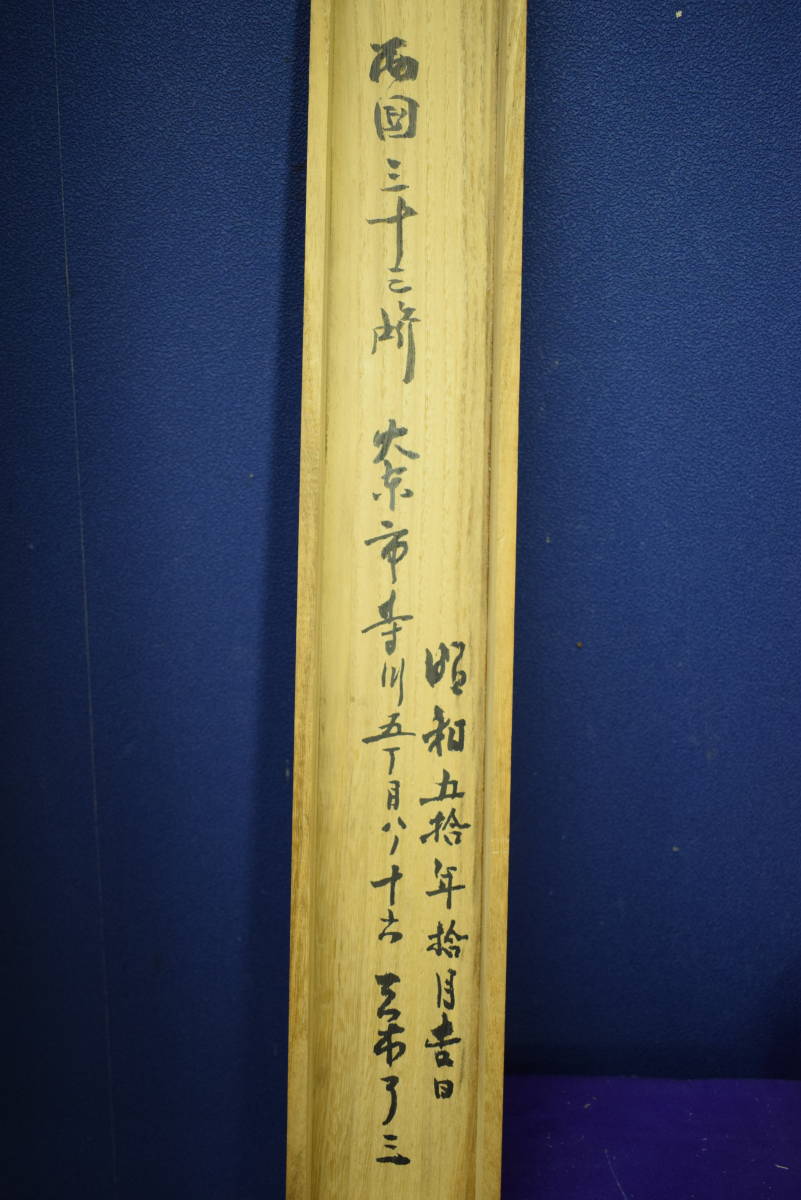 昭和五拾年拾月吉日
西国三十三所 大東市寺川五丁目八ノ十六 木了三